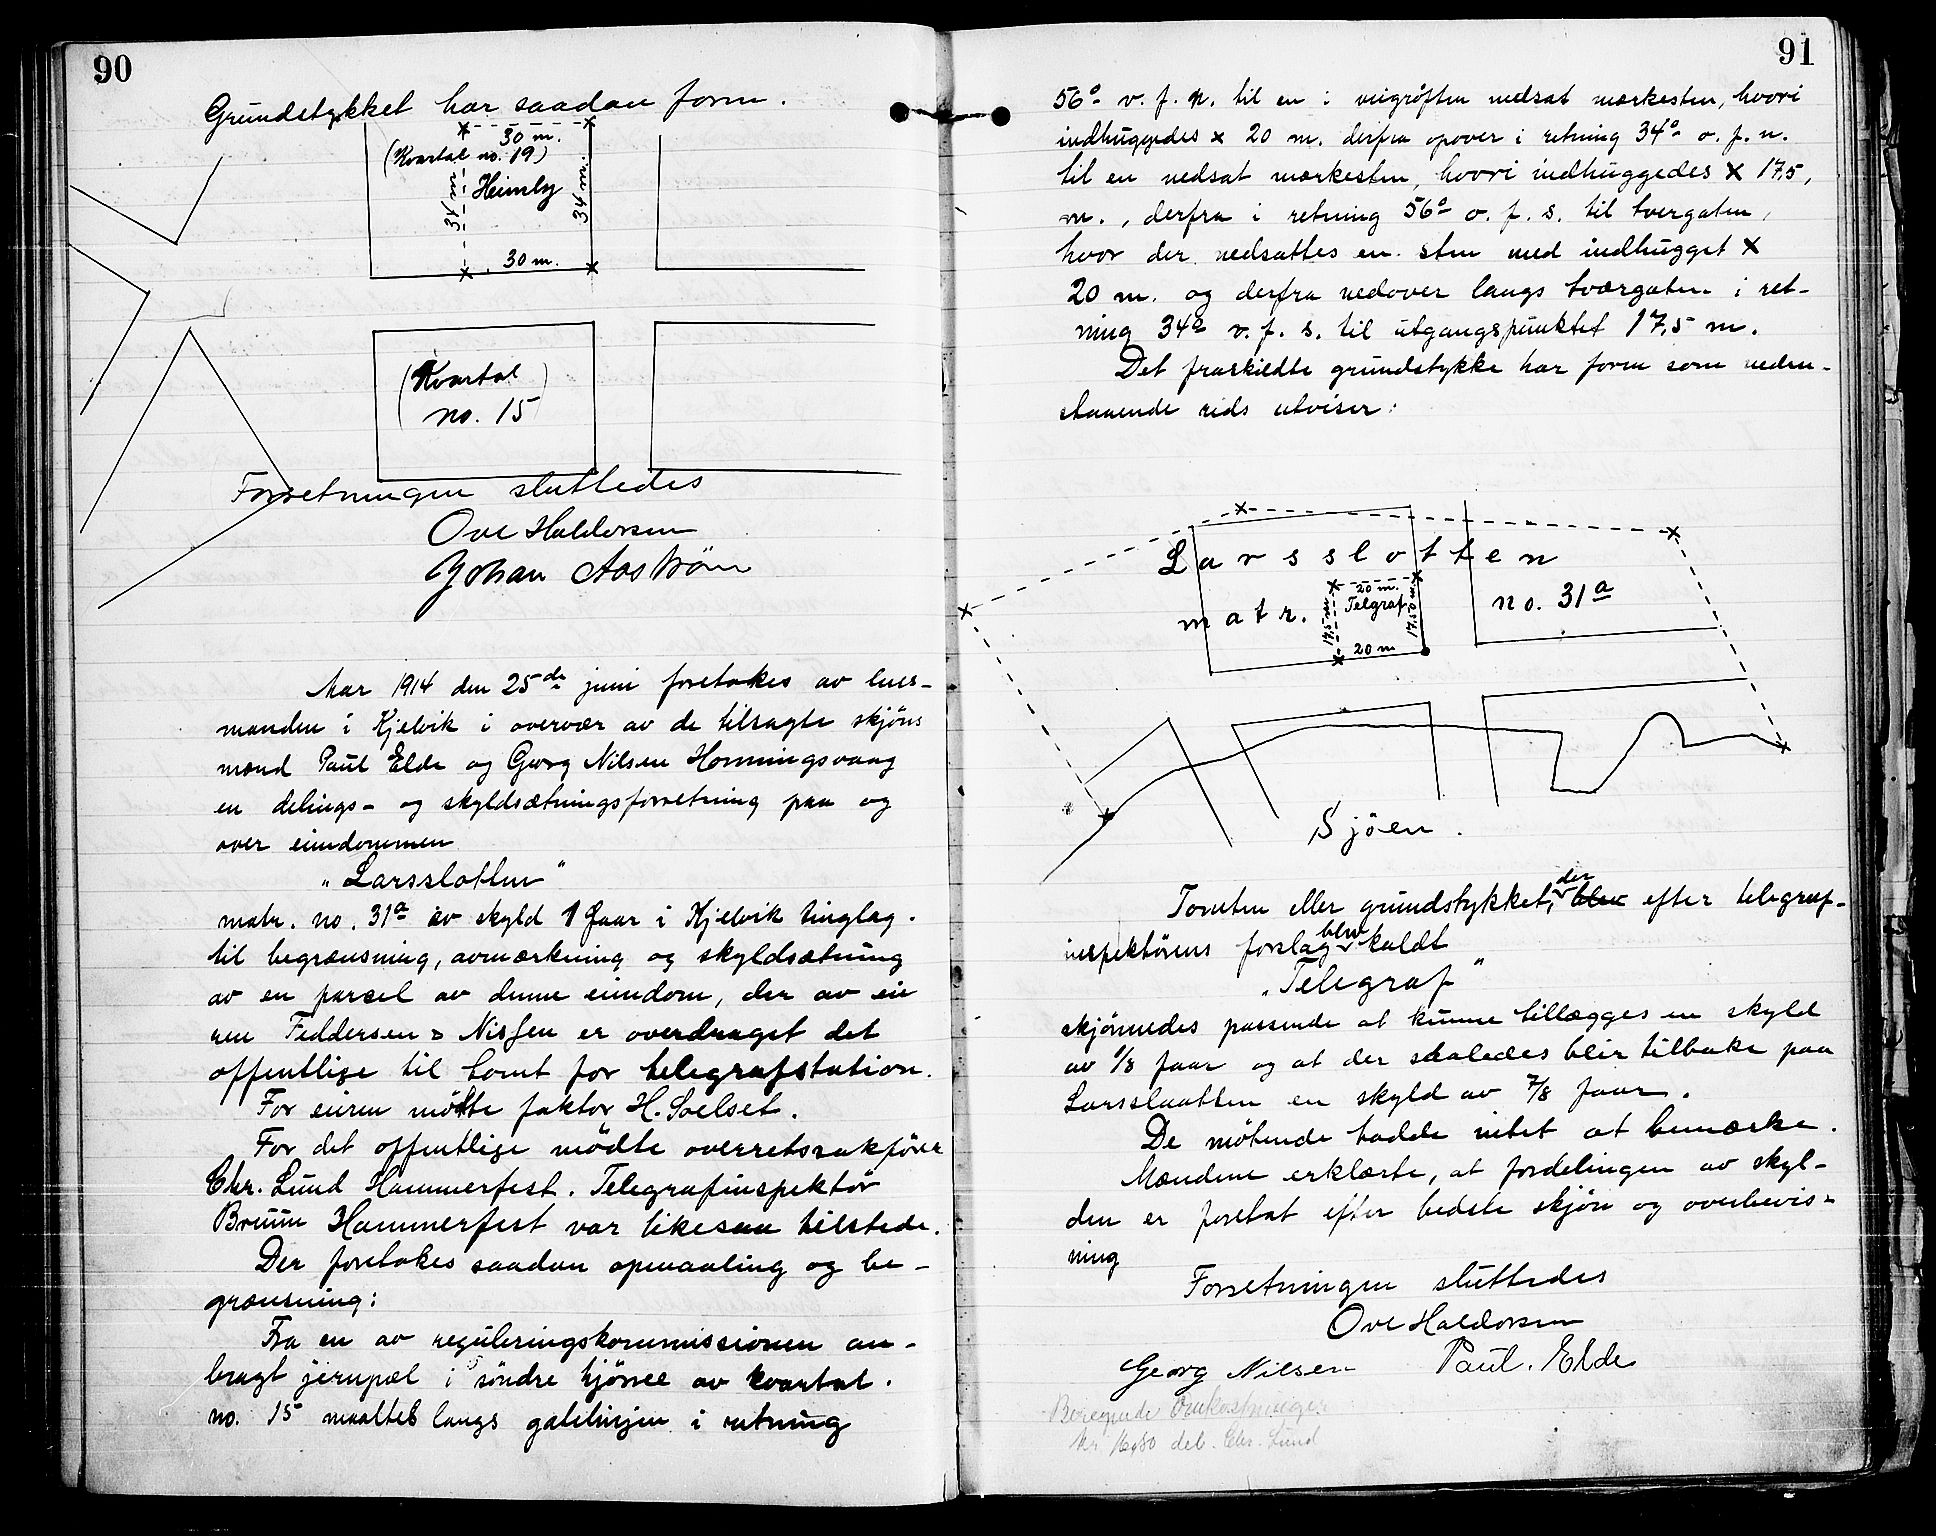 90
Grundstykket har saadan form.
30 m.
(Kvartal no. 19)
31 m
Heimly
34 m.
30 m.
(Kvartal
no. 15)
Forretningen sluttedes
Ove Haldorsen
Johan Aaström
Aar 1914 den 25de juni foretokes av lens-
manden i Kjelvik i overvær av de tilsagte skjöns
mænd Paul Elde og Georg Nilsen Honningsvaag
en delings- og skyldsætningsforretning paa og
over eiendommen
"Larsslotten"
matr. no. 31a av skyld 1 faar i Kjelvik tinglag.
til begrænsning, avmærkning og skyldsætning
av en parsel av denne eiendom, der av eie
ren Feddersen & Nissen er overdraget det
offentlige til tomt for telegrafstation.
For eieren mötte faktor H. Soelset.
For det offentlige mödte overretssakförer
Chr. Lund Hammerfest. Telegrafinspektör
Bruun Hammerfest var likesaa tilstede.
Der foretokes saadan opmaaling og be-
grænsning:
Fra en av reguleringskommissionen an-
bragt jernpæl i söndre hjörne av kvartal.
no. 15 maaltes langs gatelinjen i retning
91
56° v. f. n. til en i veigröften nedsat merkesten, hvori
indhuggedes x 20 m. derfra opover i retning 34° o. f. n.
til en nedsat merkesten, hvori indhuggedes x 17,5,
m., derfra i retning 56° o. f. s. til tvergaten,
hvor der nedsattes en sten med indhugget x
20 m. og derfra nedover langs tværgaten i ret-
ning 34° v. f. s. til utgangspunktet 17,5 m.
Det fraskildte grundstykke har form som neden-
staaende rids utviser:
Larsslotten
matr. no. 31a
20 m.
Telgraf
17,5 m
17,50 m
20 m
Sjöen.
Tomten eller grundstykket, der blev efter telegraf-
inspektörens forslag blev kaldt
"Telegraf"
skjönnedes passende at kunne tillægges en skyld
av 1/8 faar og at der saaledes blir tilbake paa
Larsslaatten en skyld av 7/8 faar.
De mötende hadde intet at bemærke.
Mændene erklærte, at fordelingen av skyl-
den er foretat efter bedste skjön og overbevis-
ning
Forretningen sluttedes
Ove Haldorsen
Georg Nilsen Paul. Elde
Beregnede Omkostninger
deb. Chr. Lund